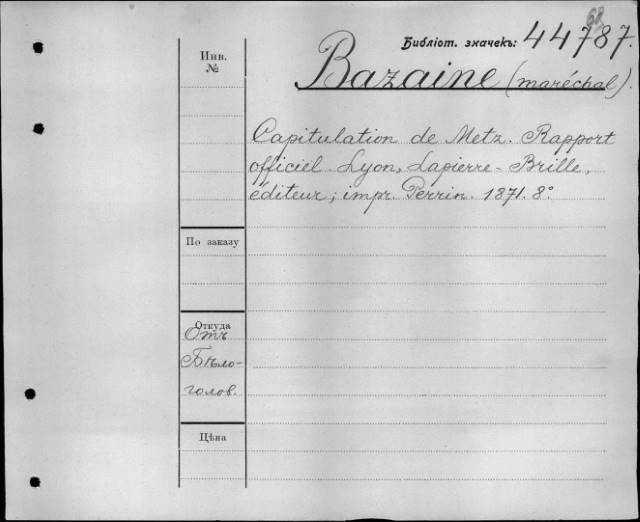 68
Библіот. значекъ: 44787.
Инв. №
Bazaine (maréchal).
Capitulation de Metz. Rapport
officiel. Lyon, Lapierre-Brille,
éditeur; impr. Perrin. 1871. 8°
По заказу
Откуда
Отъ
Бѣло-
голов.
Цѣна